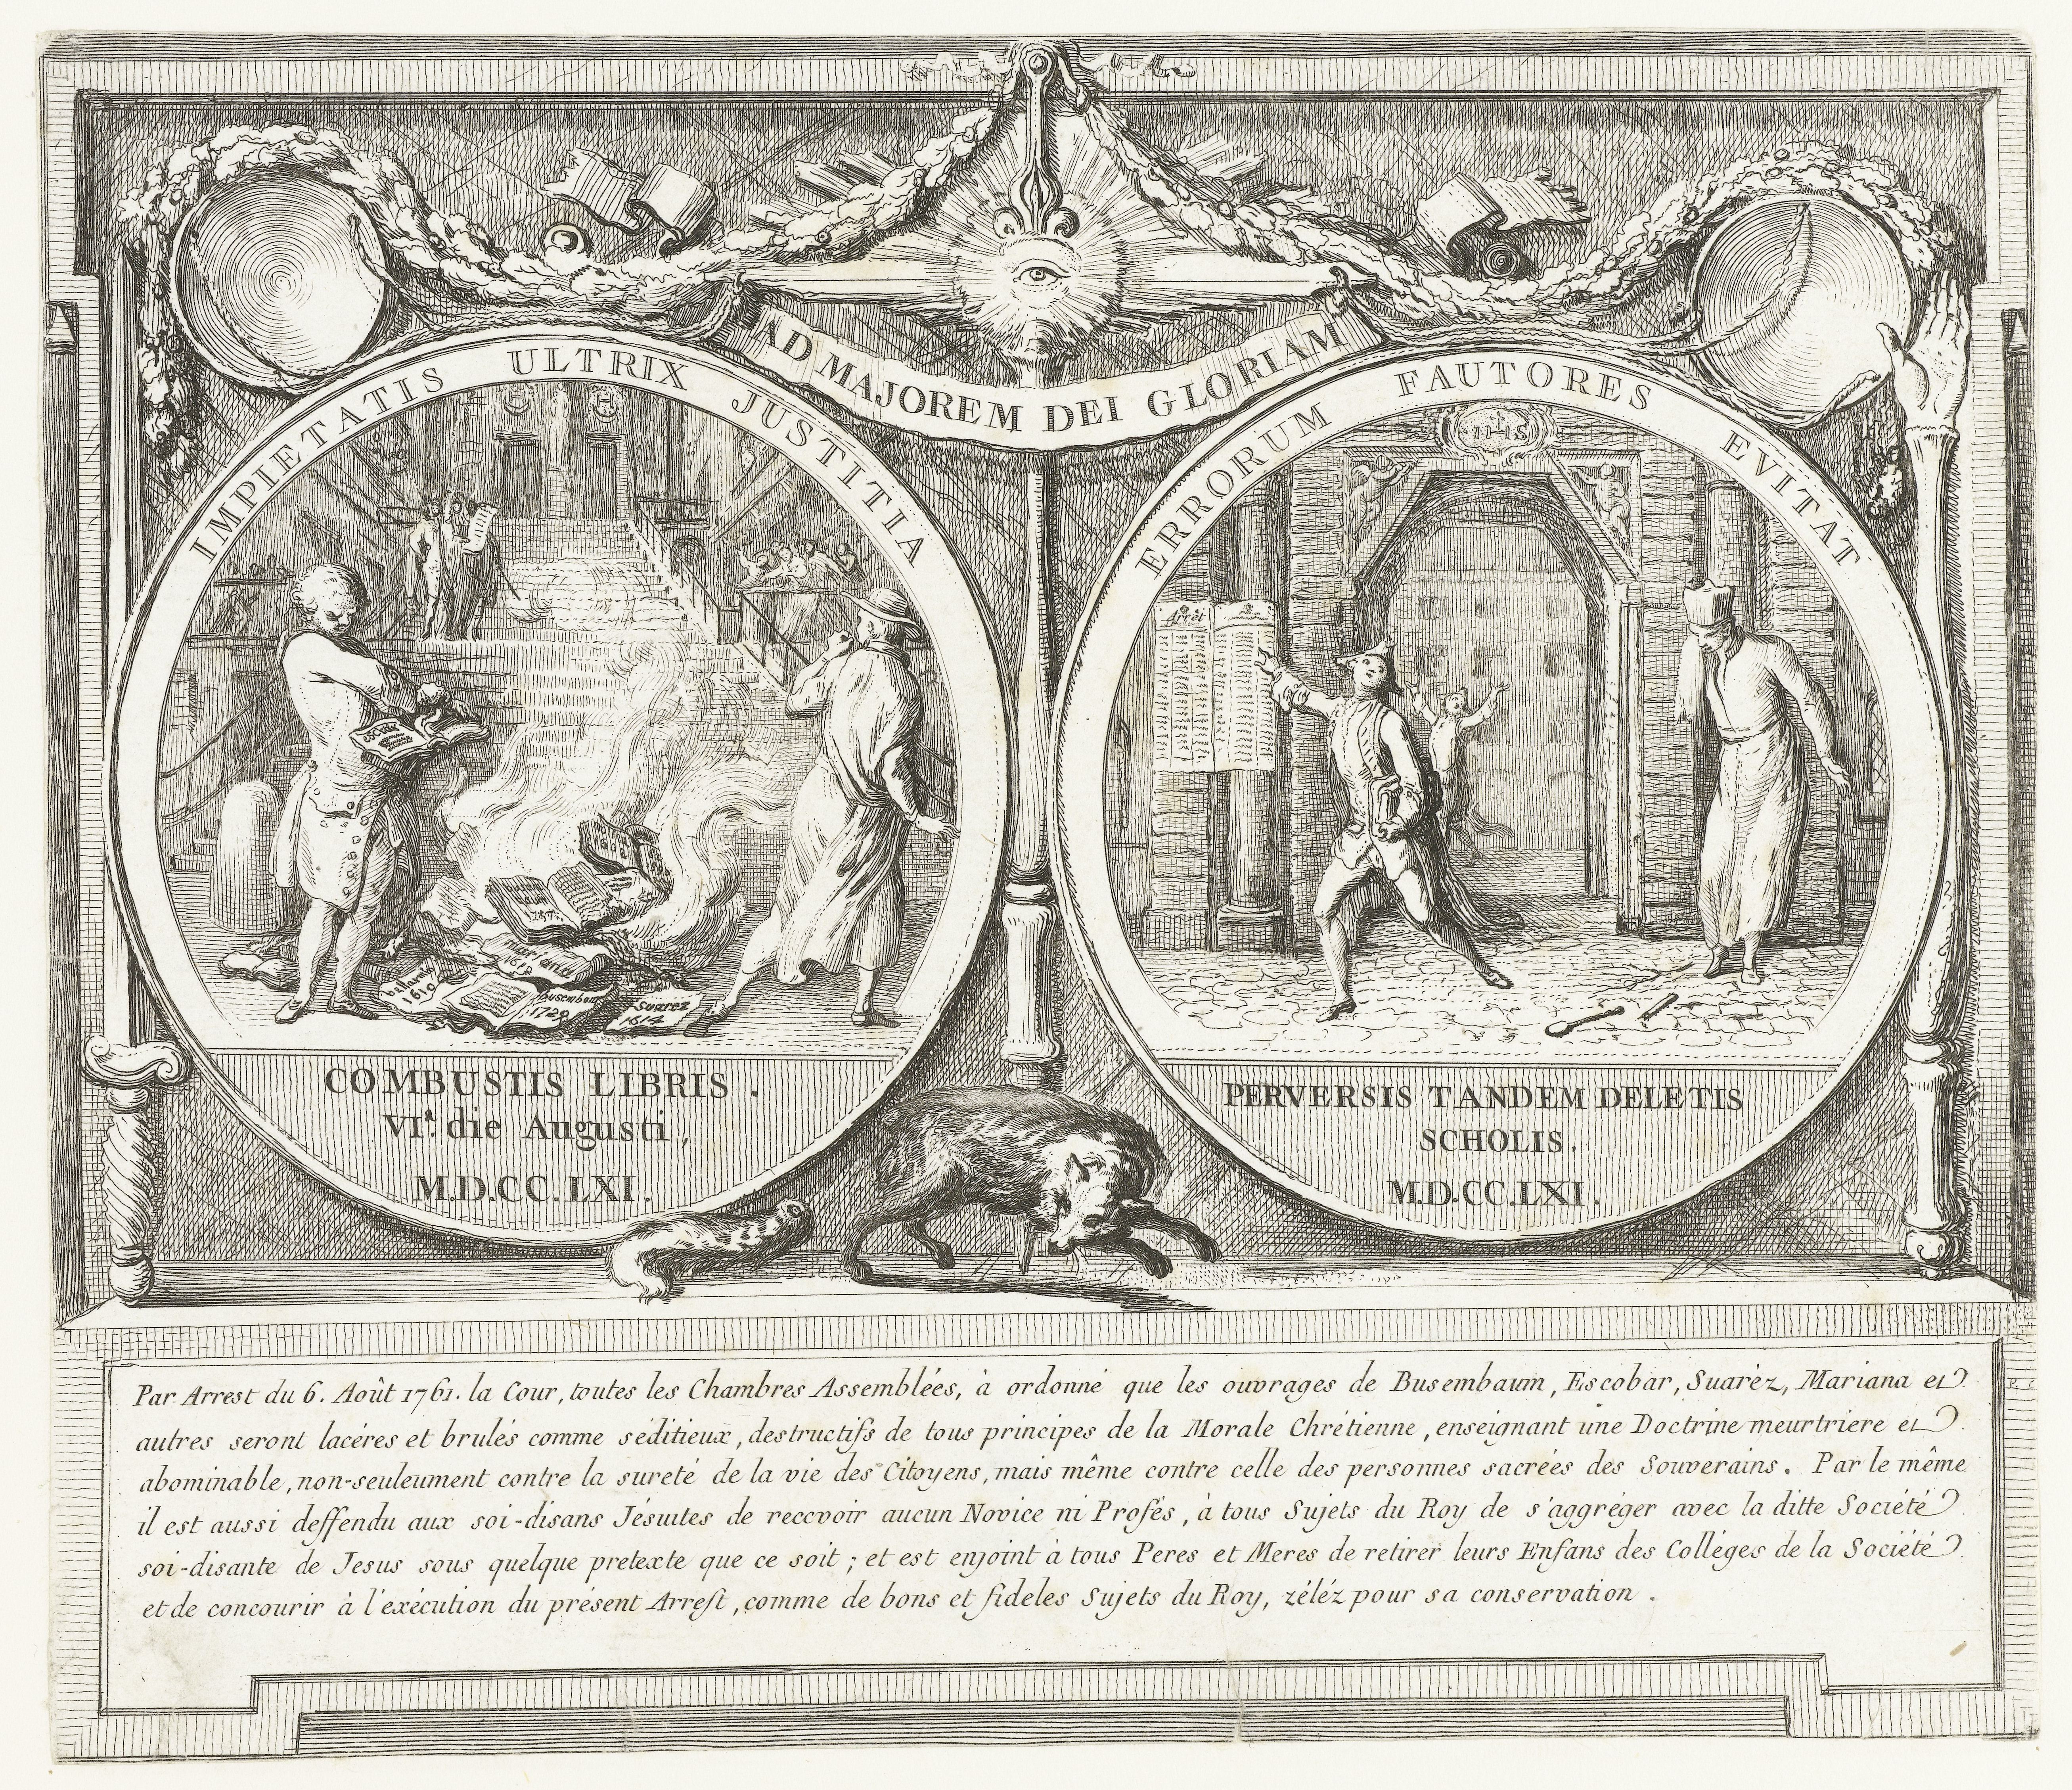 AD MAJOREM DEI GLORIAM
IMPIETATIS ULTRIX JUSTITIA
ERRORUM FAUTORES EVITAT
IHS
Arrèt
escobar
1757.
mariana
1618
bellarmin
1610
busembaum
1729
suarez
1614
COMBUSTIS LIBRIS.
VIª. die Augusti,
M.D.CC.LXI.
PERVERSIS TANDEM DELETIS
SCHOLIS.
M.D.CC.LXI.
Par Arrest du 6. Août 1761. la Cour, toutes les Chambres Assemblées, à ordonné que les ouvrages de Busembaum, Escobar, Suarèz, Mariana et
autres seront lacéres et brulés comme séditieux, destructifs de tous principes de la Morale Chrétienne, enseignant une Doctrine meurtriere et
abominable, non-seuleument contre la sureté de la vie des Citoyens, mais même contre celle des personnes sacrées des Souverains. Par le même
il est aussi deffendu aux soi-disans Jésuites de recevoir aucun Novice ni Profés, à tous Sujets du Roy de s'aggréger avec la ditte Société
soi-disante de Jesus sous quelque pretexte que ce soit; et est enjoint à tous Peres et Meres de retirer leurs Enfans des Colléges de la Société
et de concourir à l'exécution du présent Arrest, comme de bons et fideles Sujets du Roy, zéléz pour sa conservation.